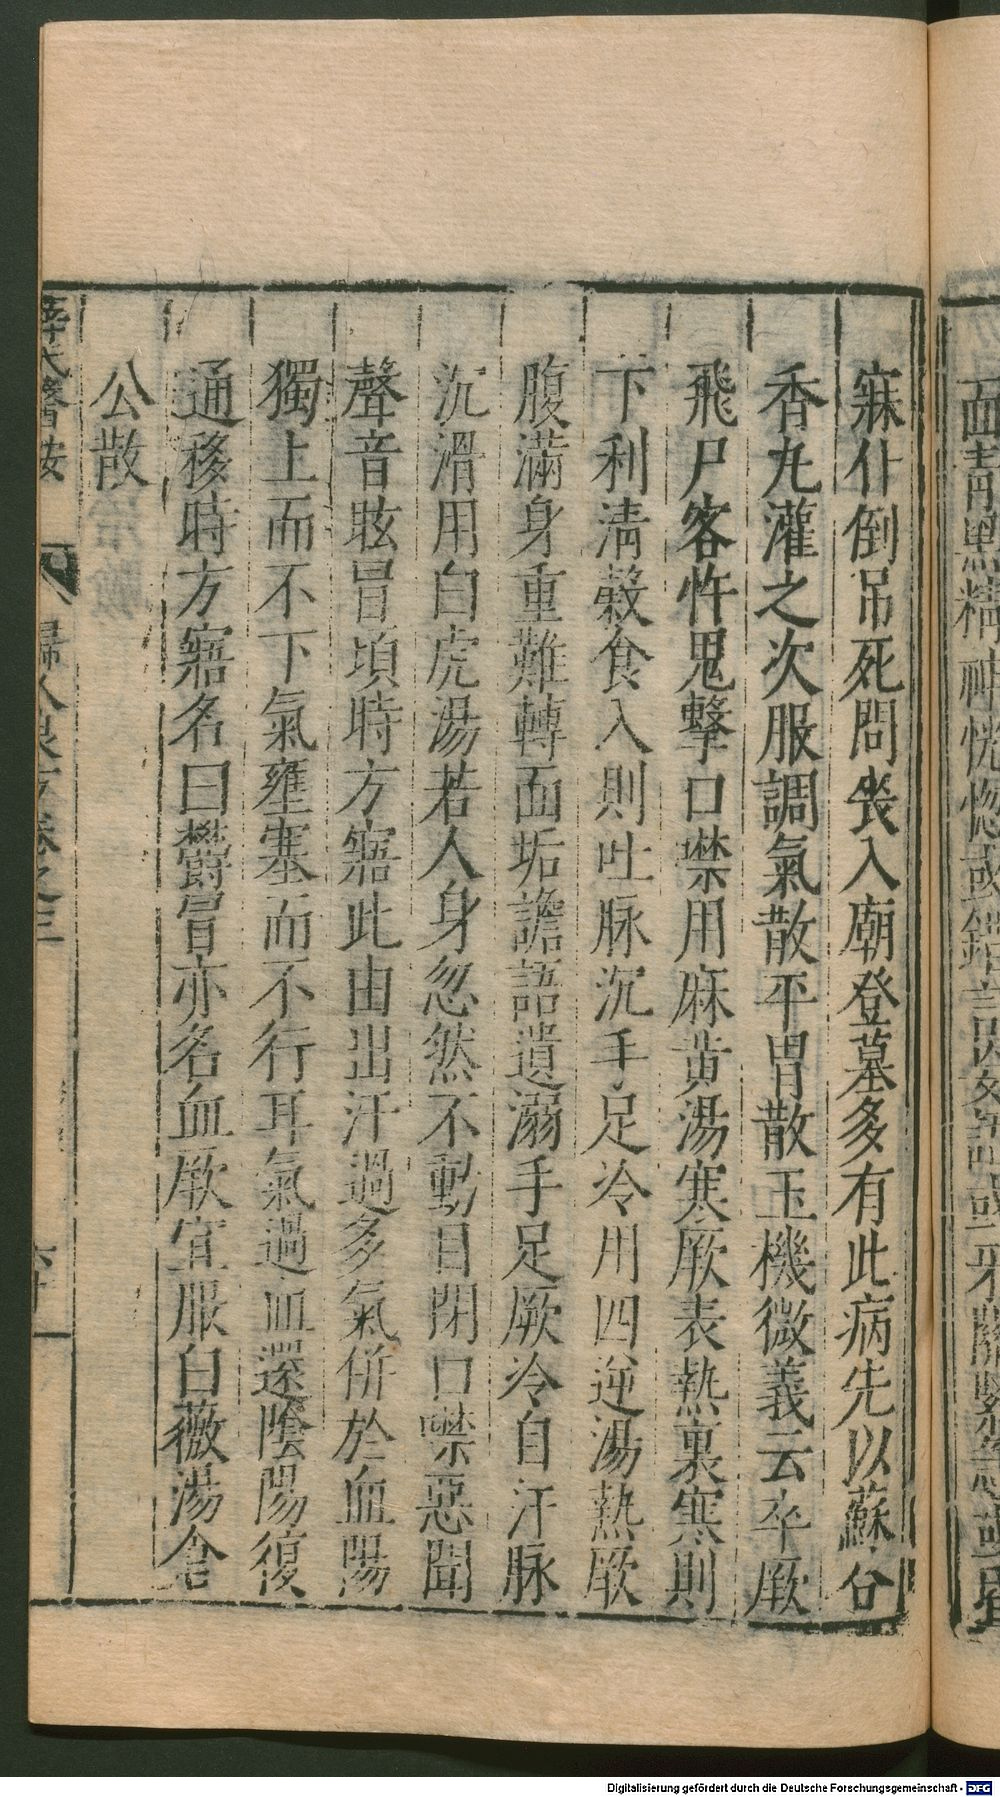 面青黑精神恍惚或錯言妄語或牙關緊急或昏
寐仆倒吊死問喪入廟登墓多有此病先以蘇合
香丸灌之次服調氣散平胃散玉機微義云卒厥
飛尸客忤鬼擊口噤用麻黃湯寒厥表熱裏寒則
下利清穀食入則吐脉沉手足冷用四逆湯熱厥
腹滿身重難轉面垢譫語遺溺手足厥冷自汗脉
沉滑用白虎湯若人身忽然不動目閉口噤惡聞
聲音眩冒頃時方寤此由出汗過多氣併於血陽
獨上而不下氣壅塞而不行耳氣過血還陰陽復
通移時方寤名曰鬱冒亦名血厥宜服白薇湯倉
公散
薛氏醫按 婦人良方卷之三
Digitalisierung gefördert durch die Deutsche Forschungsgemeinschaft - DFG